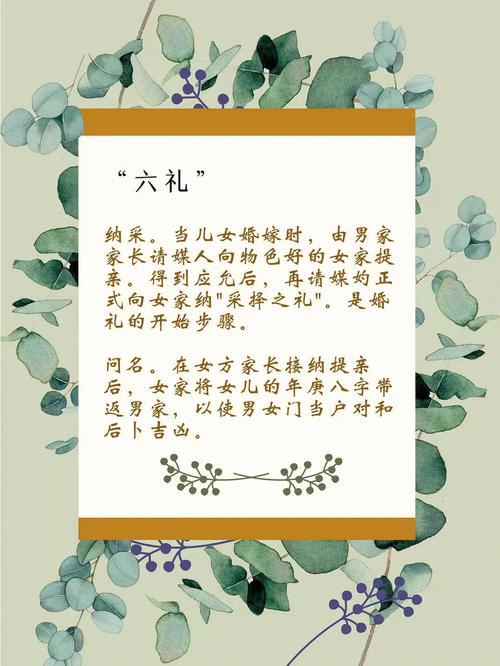 “六礼”
纳采。当儿女婚嫁时，由男家
家长请媒人向物色好的女家提
亲。得到应允后，再请媒妁正
式向女家纳"采择之礼"。是婚
礼的开始步骤。
问名。在女方家长接纳提亲
后，女家将女儿的年庚八字带
返男家，以使男女门当户对和
后卜吉凶。